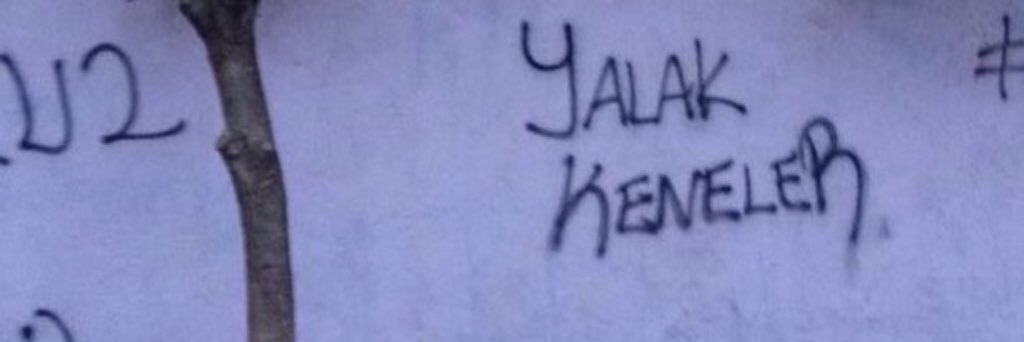 U2
YALAK
KENELER
#